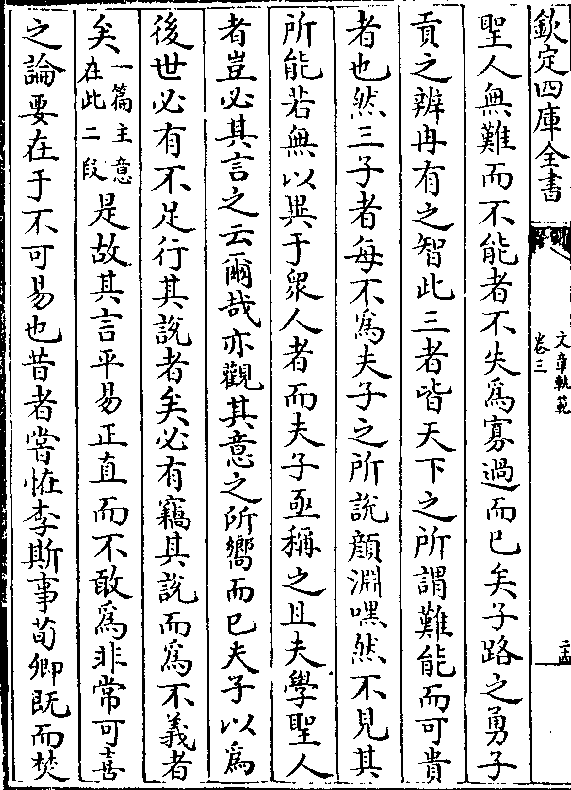 欽定四庫全書
文章軌範
卷三
二十四
聖人無難而不能者不失為寡過而已矣子路之勇子
貢之辨冉有之智此三者皆天下之所謂難能而可貴
者也然三子者每不為夫子之所說顔淵嘿然不見其
所能若無以異于衆人者而夫子亟稱之且夫學聖人
者豈必其言之云爾哉亦觀其意之所嚮而已夫子以為
後世必有不足行其說者矣必有竊其說而為不義者
矣一篇主意在此二段是故其言平易正直而不敢為非常可喜
之論要在于不可易也昔者嘗怪李斯事荀卿既而焚